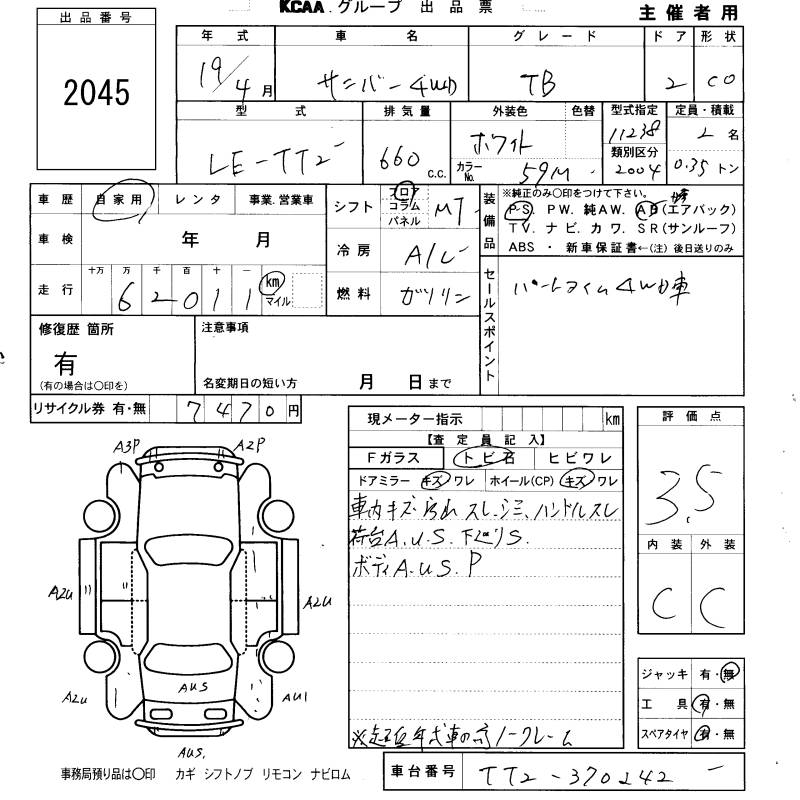 KCAA.グループ 出品票
主催者用
出品番号
2045
年式 車名 グレード ドア 形状
19/4月 サンバー4WD TB 2 CO
型式 排気量 外装色 色替 型式指定 定員・積載
LE-TT2 660 c.c. ホワイト 11238 2名
カラーNo. 59M 類別区分 2004 0.35トン
車歴 自家用 レンタ 事業.営業車
シフト フロア コラム パネル MT
装備品 ※純正のみ○印をつけて下さい。
P.S. P.W. 純A.W. A.B(エアバック)
T.V. ナビ. カワ. S.R(サンルーフ)
ABS ・ 新車保証書←(注) 後日送りのみ
車検 年 月
冷房 A/C
走行 十万 万 千 百 十 一
6 2 0 1 1 km マイル
燃料 ガソリン
セールスポイント
パートタイム4WD車
修復歴 箇所
有
(有の場合は○印を)
注意事項
名変期日の短い方 月 日まで
リサイクル券 有・無 7470円
現メーター指示 km
【査定員記入】
Fガラス トビ石 ヒビワレ
ドアミラー キズ ワレ ホイール(CP) キズ ワレ
車内キズ・汚れ スレ.シミ.ハンドルスレ
荷台A.U.S. 下廻りS.
ボディA.U.S.P
評価点
3.5
内装 外装
C C
A3P A2P
A2U A2U
A2U AUS AU1
AUS.
ジャッキ 有・無
工具 有・無
スペアタイヤ 有・無
※超低年式車の為ノークレーム
事務局預り品は○印 カギ シフトノブ リモコン ナビロム
車台番号 TT2-370242